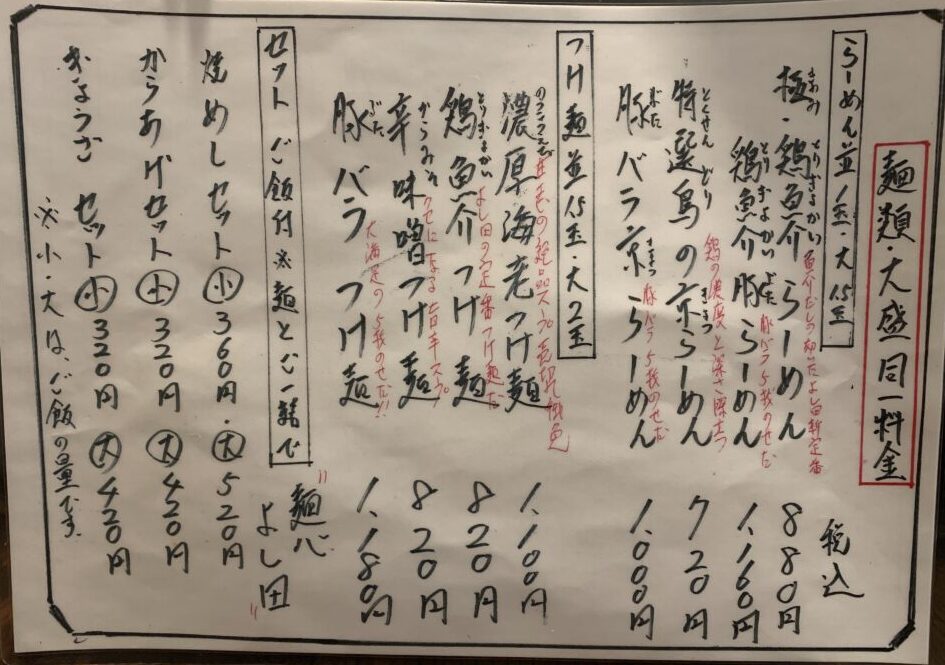 麺類・大盛同一料金
税込
らーめん並1玉・大1.5玉
極・鶏魚介らーめん 880円
きわみ とりぎょかい
鶏魚介豚らーめん 1,160円
とりぎょかいぶた
豚バラ5枚のせだ
特選鳥の京らーめん 720円
とくせんどり
鶏の濃度と深さ際立つ
豚バラ京らーめん 1,000円
ぶた
豚バラ5枚のせだ
つけ麺並1.5玉・大2玉
濃厚海老つけ麺 1,100円
のうこうえび
鶏魚介つけ麺 820円
とりぎょかい
よし田の定番つけ麺だ
辛味噌つけ麺 820円
からみそ
くせになる旨辛スープ
豚バラつけ麺 1,180円
ぶた
大満足の5枚のせだ!!
セットご飯付※麺とご一緒で
焼めしセット 小 360円・大 520円
からあげセット 小 320円 大 420円
ぎょうざセット 小 320円 大 420円
※小・大は、ご飯の量です。
"麺心よし田"